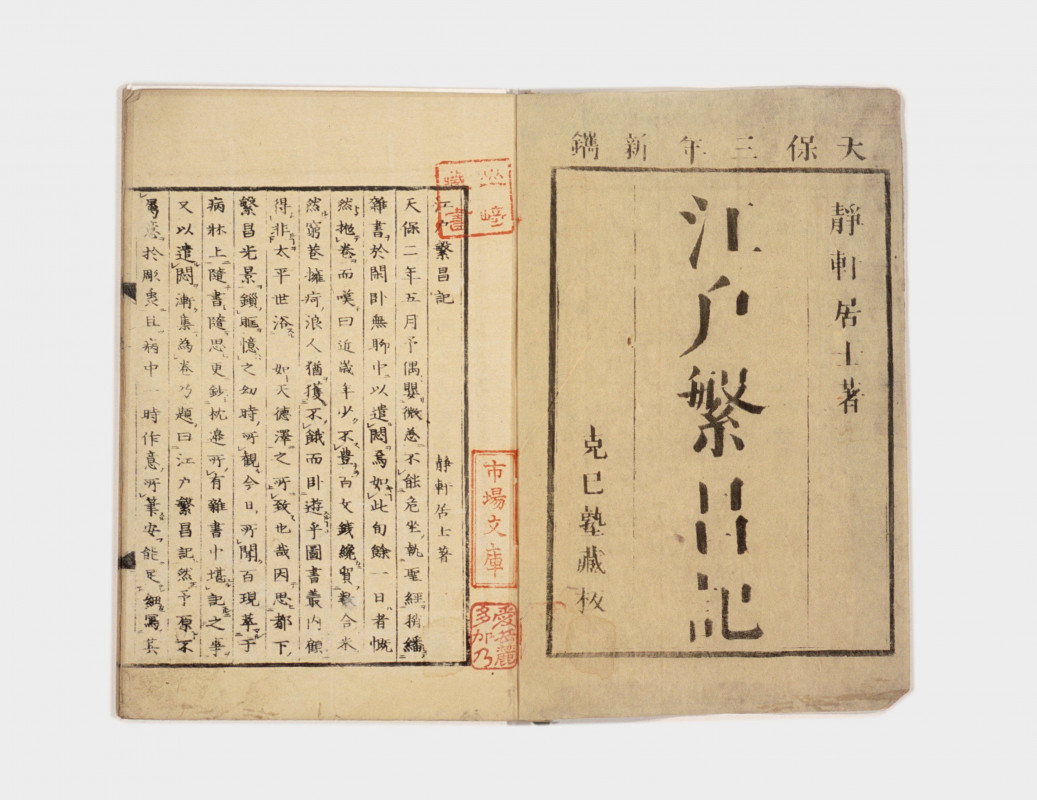 天保三年新鐫
靜軒居士著
江戶繁昌記
克己塾藏板
江戶繁昌記 靜軒居士著
天保二年五月予偶嬰微恙不能危坐執聖經稍繙
雜書於閑臥無聊中以遣悶焉如此旬餘一日者慨
然抛卷而嘆曰近歲年少不豊百文錢纔買數合米
然窮巷擁疴浪人猶獲不餓而臥遊乎圖書叢內顧
得非太平世俗 如天德澤之所致也哉因思都下
繁昌光景鎖眶憶之幼時所觀今日所聞百現萃于
病牀上隨書隨思更鈔枕邊所有雜書中堪記之事
又以遣悶漸集為卷乃題曰江戶繁昌記然予原不
屬意於彫蟲且病中一時作意所筆安能足細寫其
藏書
市場文庫
多加乃